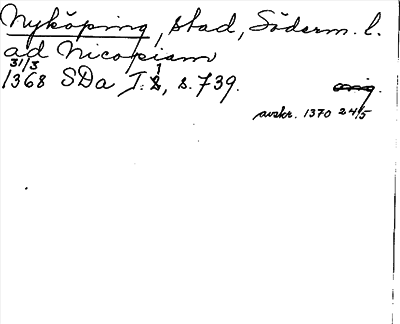 Nyköping, stad, Söderm. l.
ad Nicopiam
31/3
1368 SDa I:1, s. 739. orig.
avskr. 1370 24/5